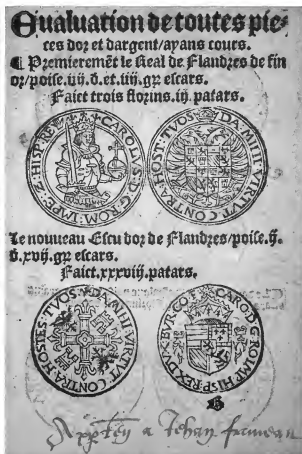 Eualuation de toutes pie-
ces dor et dargent/ayans cours.
¶ Premieremẽt le Real de Flandres de fin
or/poise.iij.d.et.iiij.grz escars.
Faict trois florins.iij.patars.
CAROLVS·D·G·ROM·IMPE·Z·HISP·RE
DA·MIHI·VIRTVT·CONTRA·HOST·TVOS
Le nouueau Escu dor de Flandres/poise.ij.
d.xvij.grz escars.
Faict.xxxviij.patars.
DA·MIHI·VIRTVT·CONTRA·HOSTES·TVOS
CAROL·D·G·ROM·IMP·HISP·REX·DVX·BVRG·CO·F
B
a Jehan